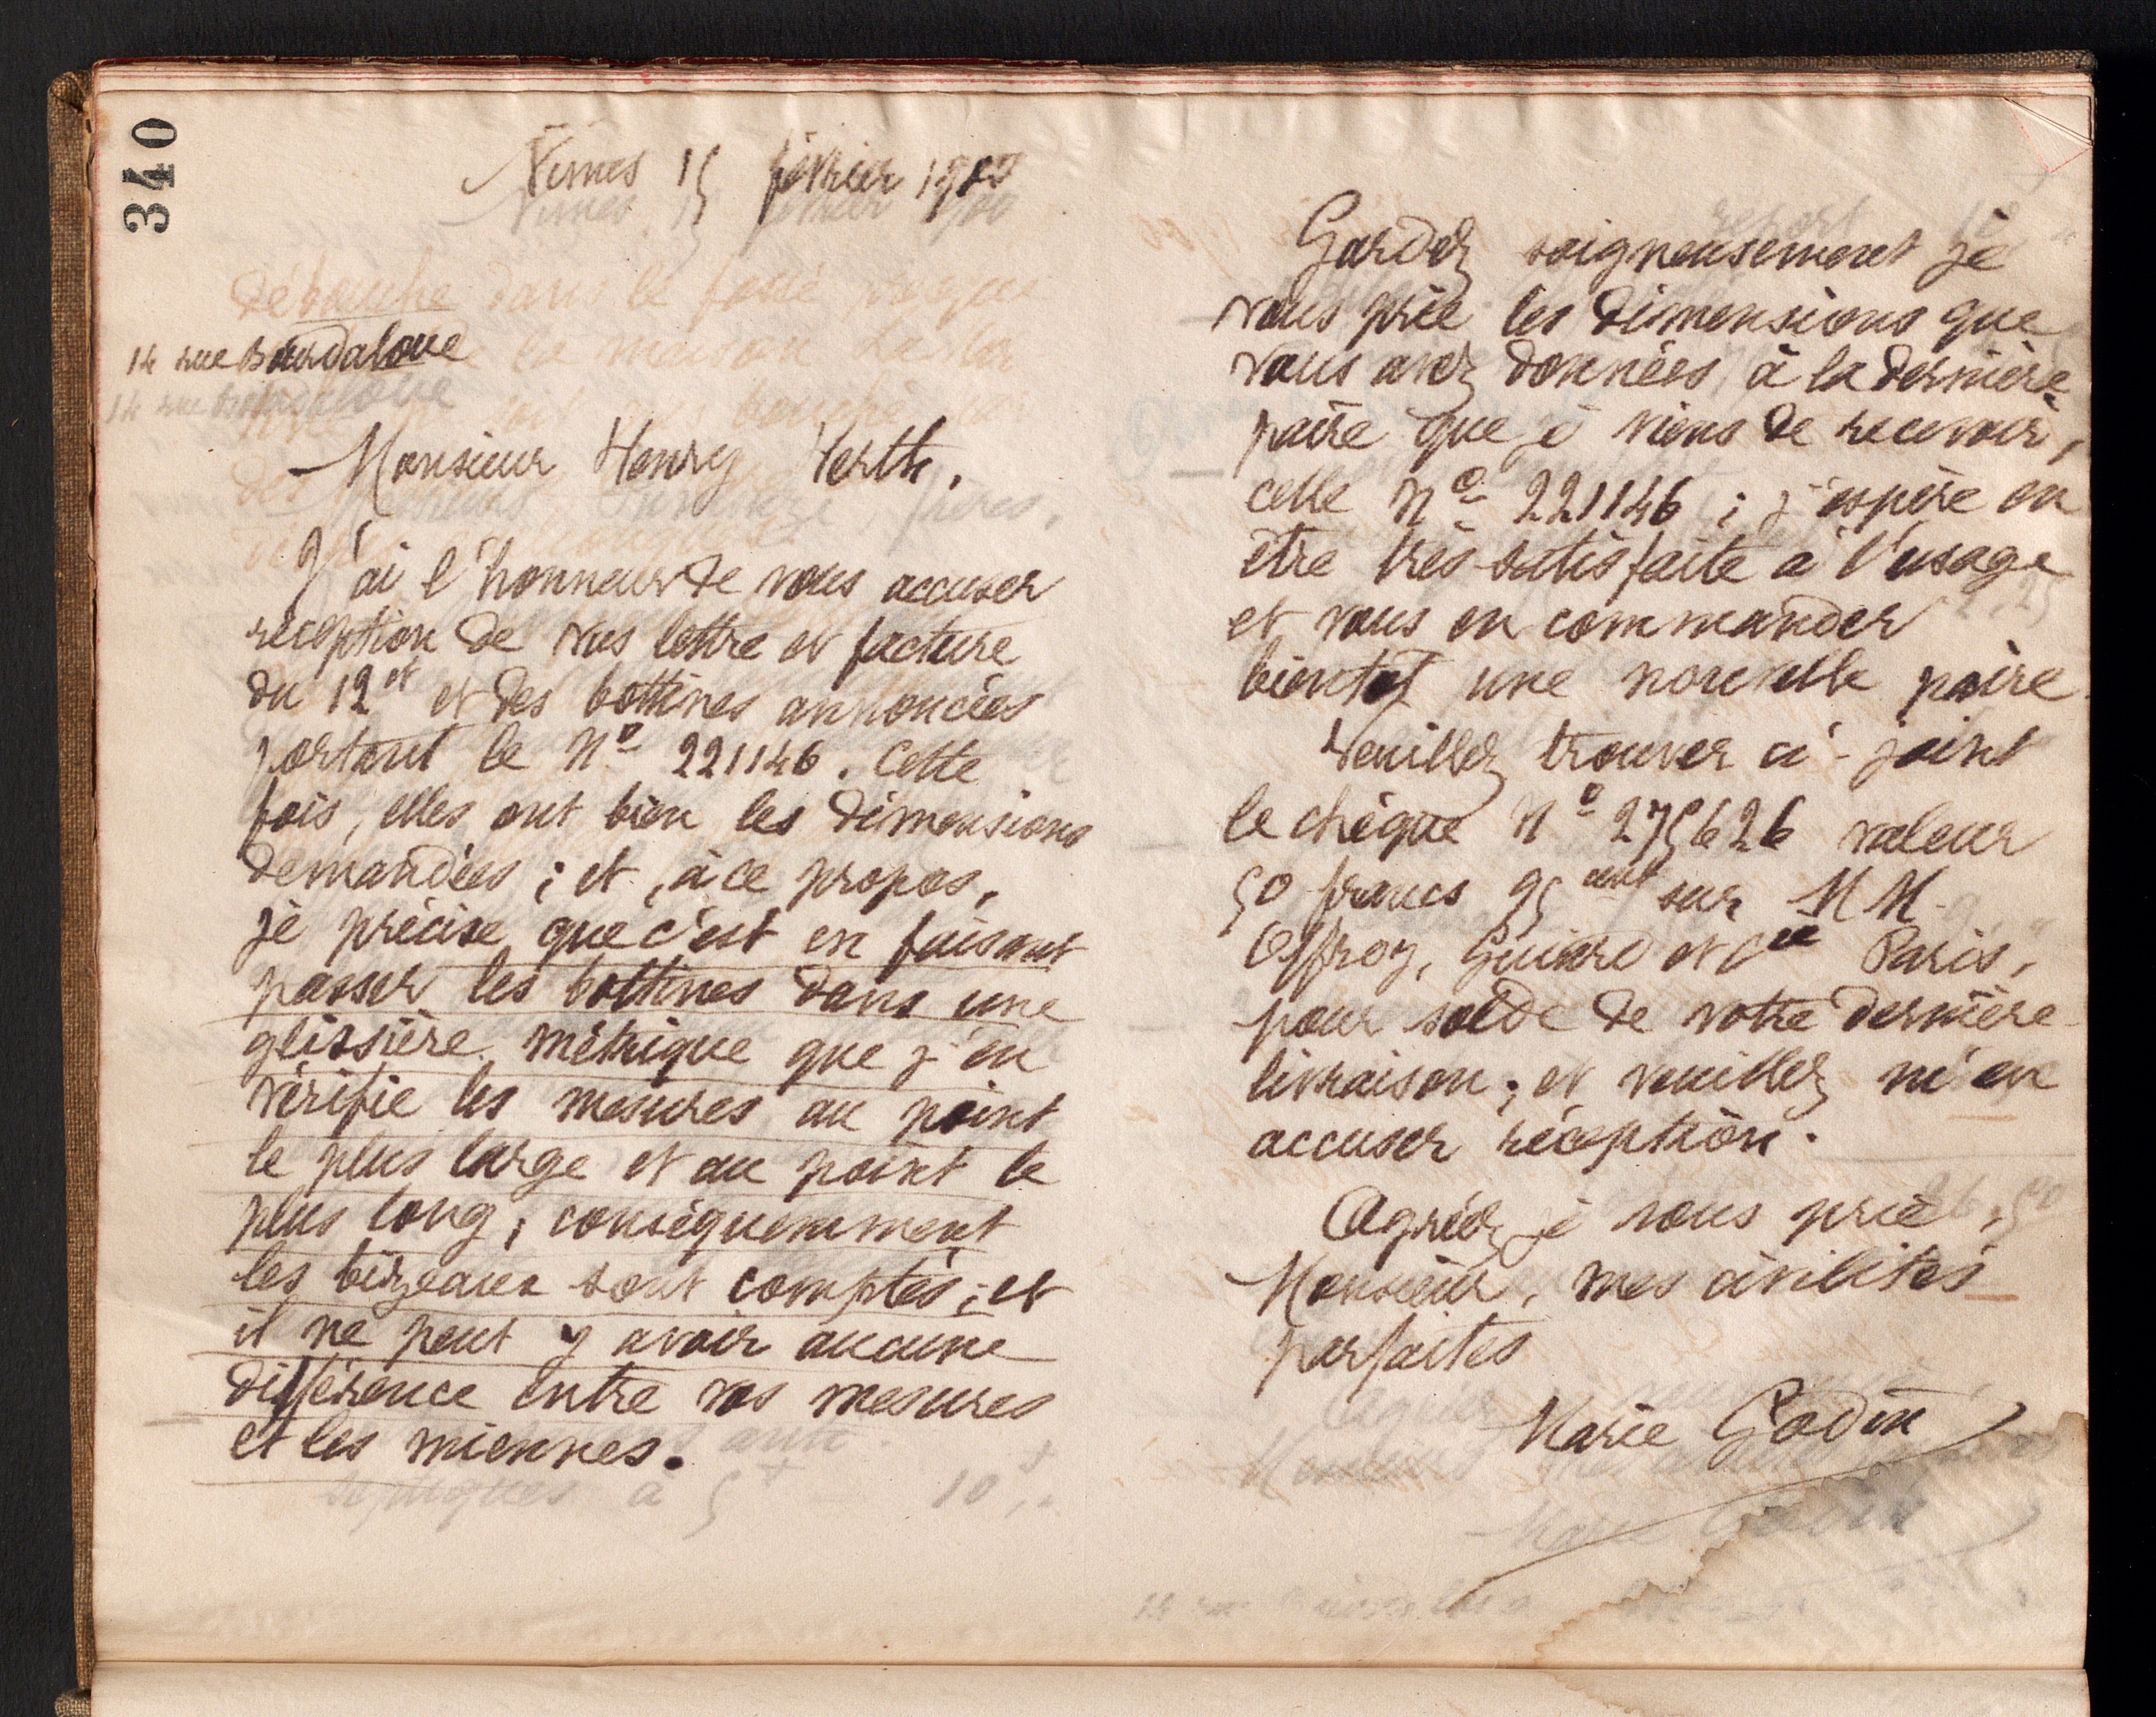 340
Nîmes 15 février 1900
14 rue Bourdaloue
Monsieur Henry Herth,
J'ai l'honneur de vous accuser
réception de vos lettre et facture
du 12 et et des bottines annoncées
portant le No 221146. Cette
fois, elles ont bien les dimensions
demandées ; et, à ce propos,
je précise que c'est en faisant
passer les bottines dans une
glissière métrique que j'en
vérifie les mesures au point
le plus large et au point le
plus long ; conséquemment
les bizeaux sont comptés ; et
il ne peut y avoir aucune
différence entre vos mesures
et les miennes.
Gardez soigneusement je
vous prie les dimensions que
vous avez données à la dernière
paire que je viens de recevoir,
celle No 221146 ; j'espère en
être très satisfaite à l'usage
et vous en commander
bientot une nouvelle paire.
Veuillez trouver ci-joint
le chèque No 275626 valeur
50 francs 95 cent sur MM.
Offroy, Guiard et Cie Paris,
pour solde de votre dernière
livraison ; et veuillez m'en
accuser réception.
Agréez je vous prie,
Monsieur, mes civilités
parfaites
Marie Godin